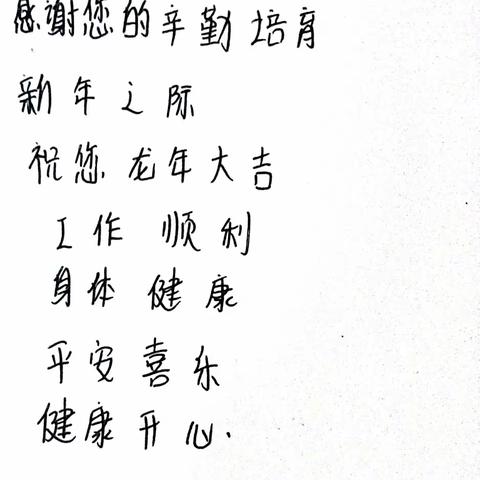 感谢您的辛勤培育
新年之际
祝您龙年大吉
工作顺利
身体健康
平安喜乐
健康开心.